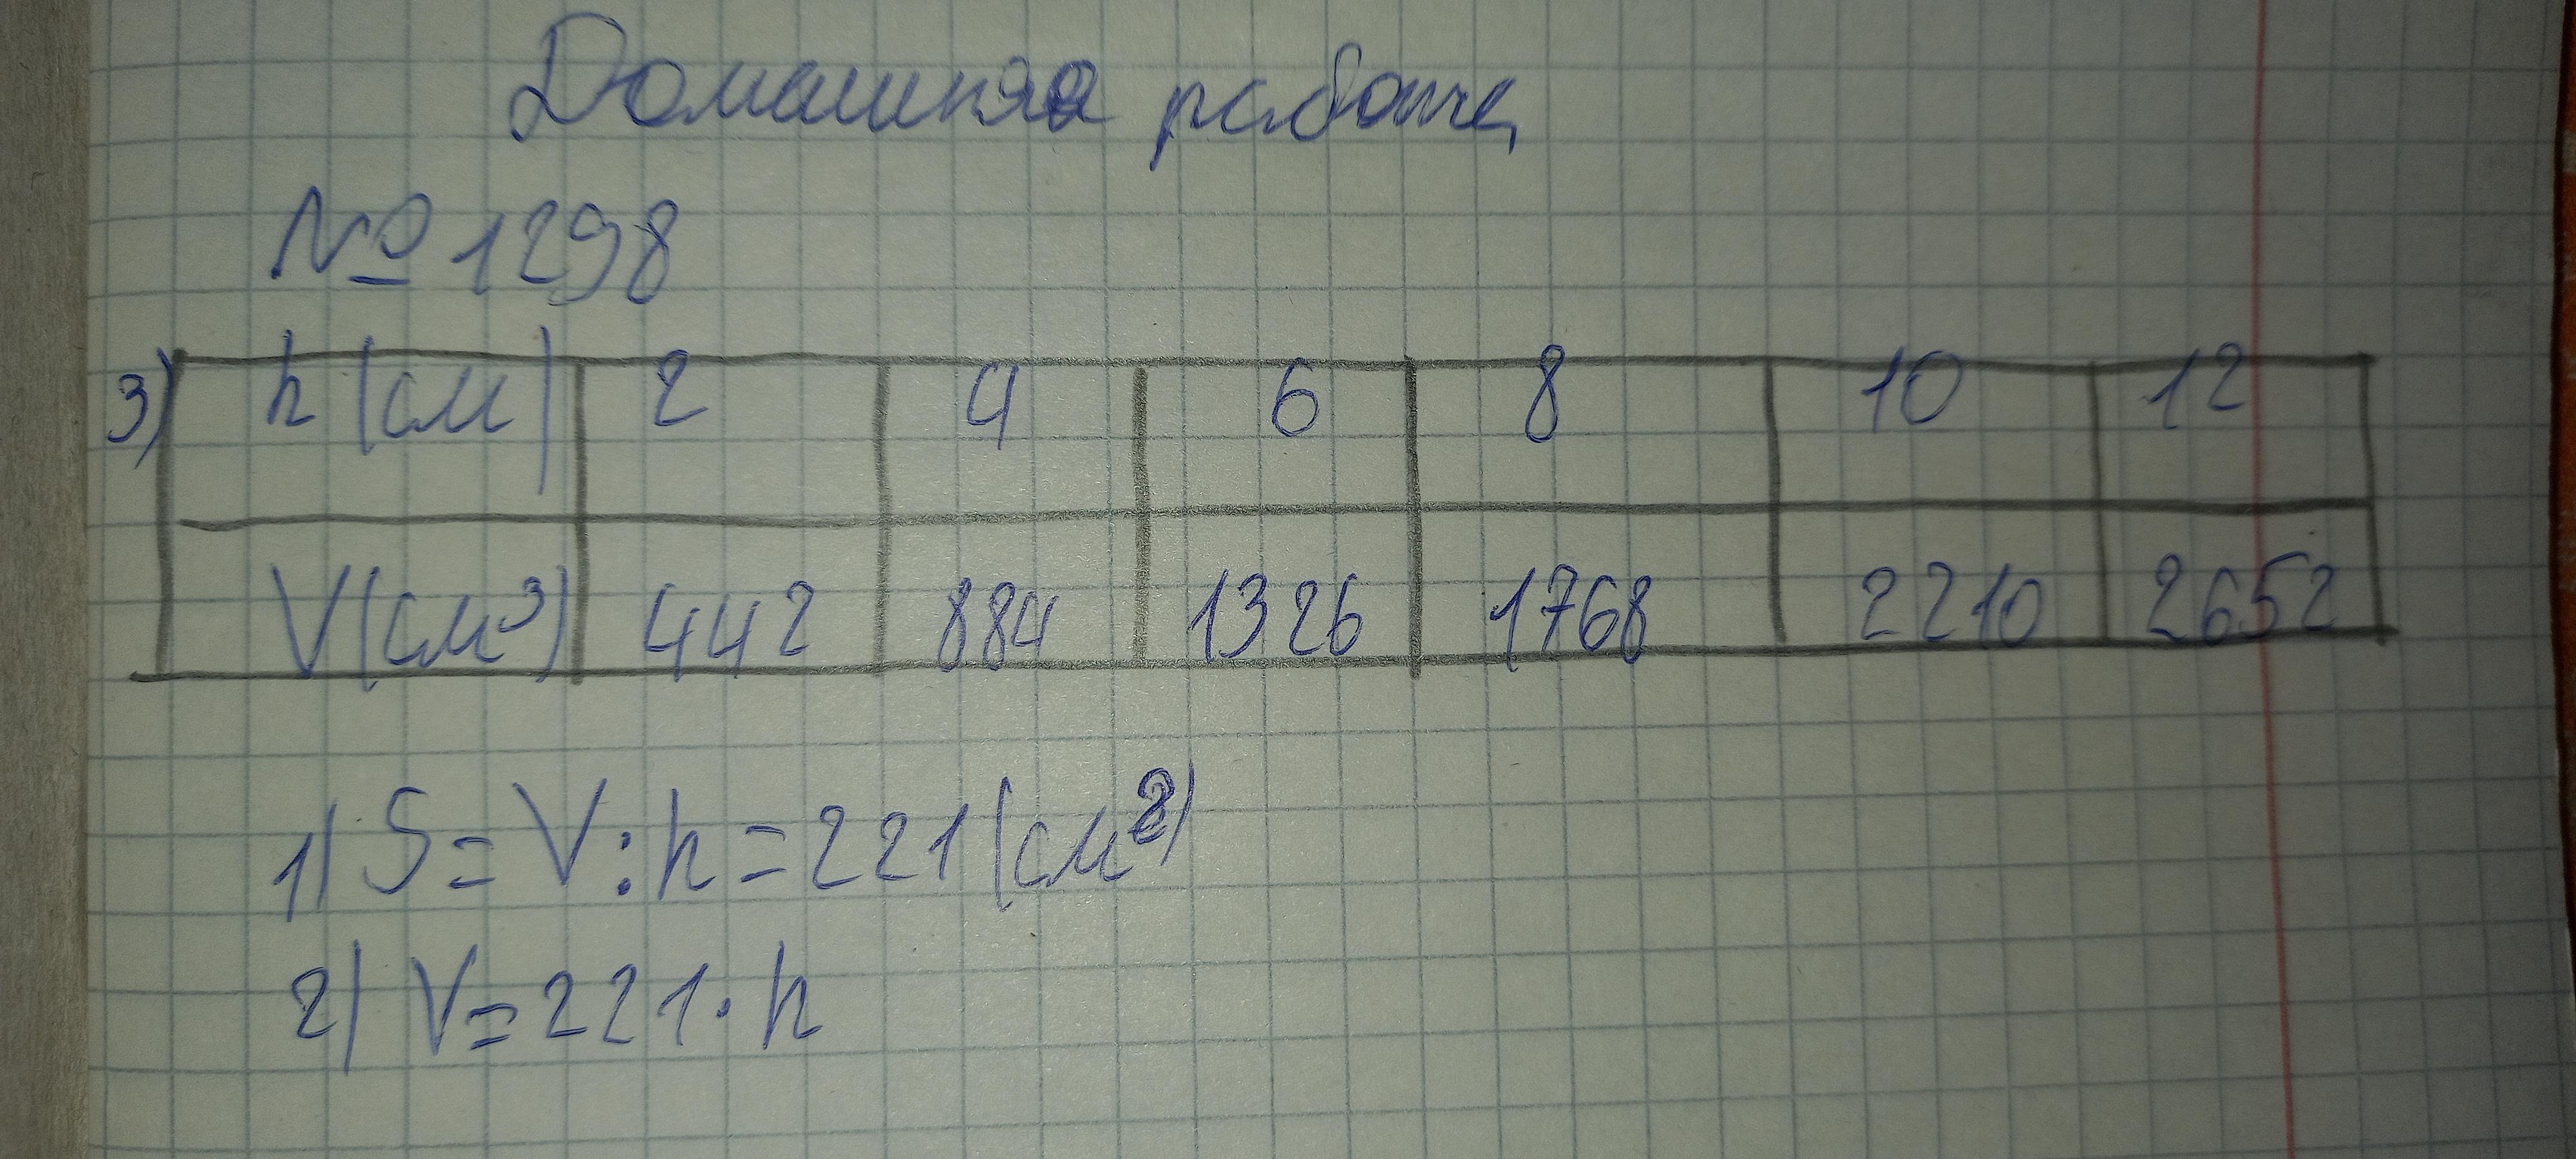 Домашняя работа
№ 1298
3) h (см) 2 4 6 8 10 12
V(см³) 442 884 1326 1768 2210 2652
1) S = V : h = 221 (см²)
2) V = 221 · h